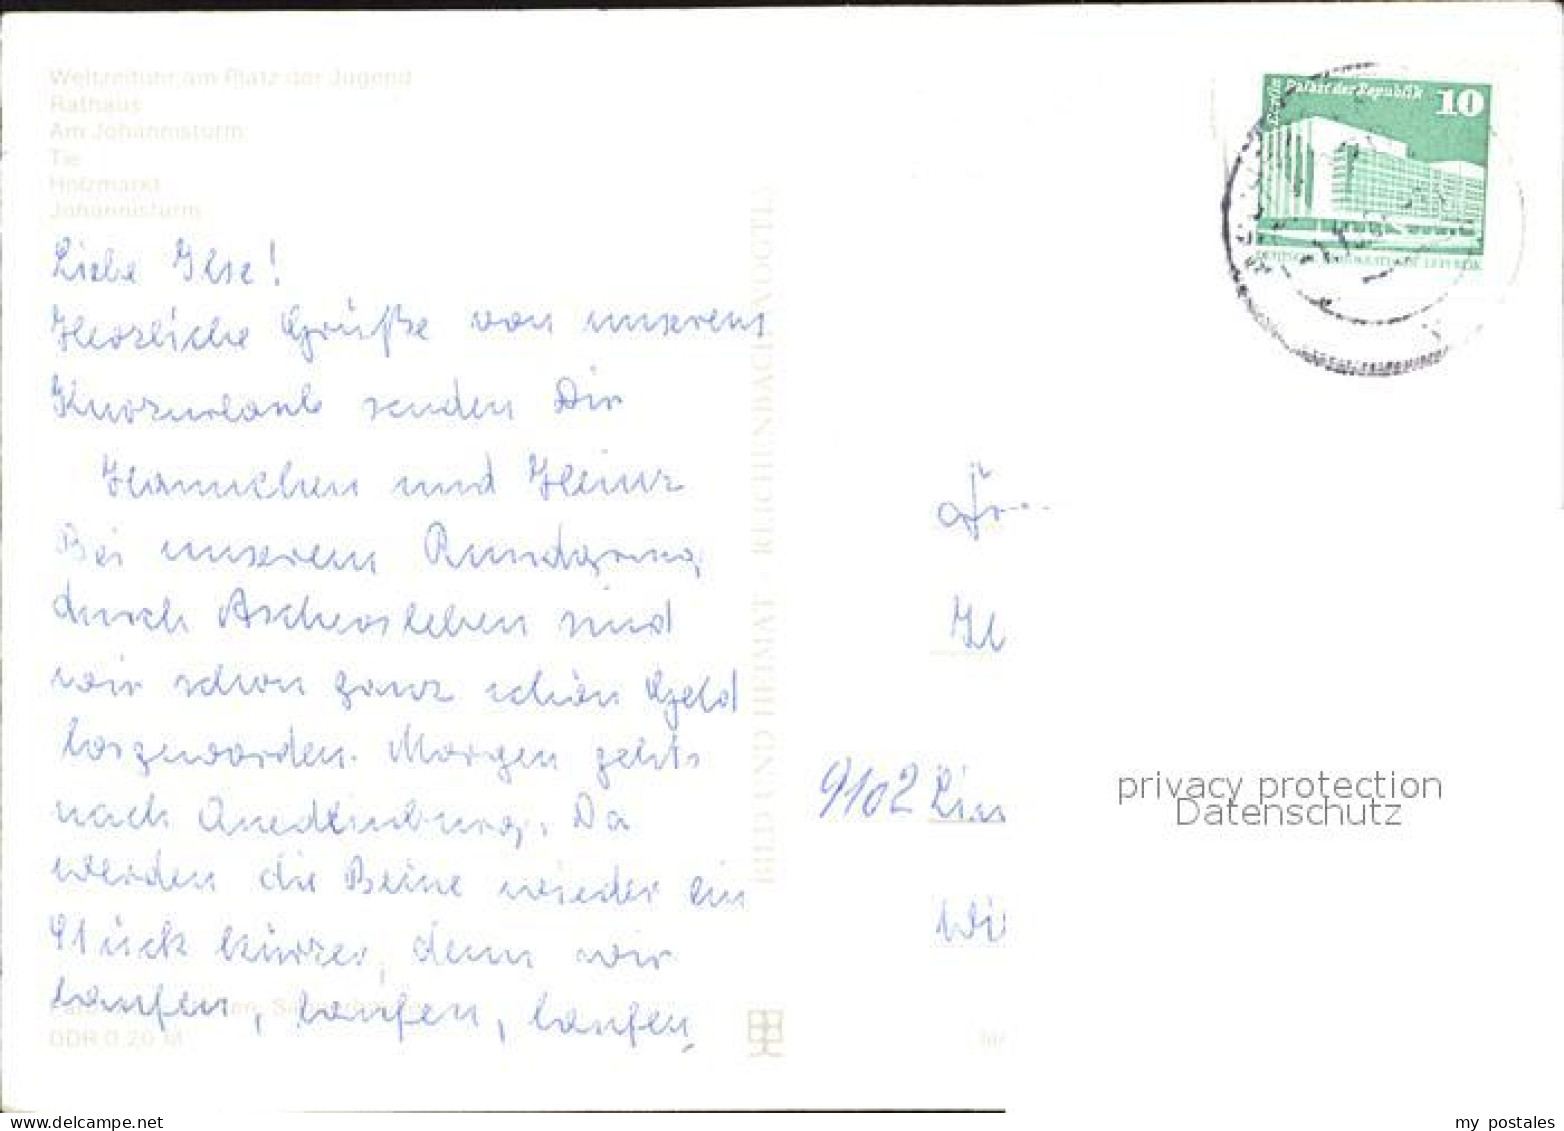 Weltzeituhr am Platz der Jugend
Rathaus
Am Johannisturm
Tie
Holzmarkt
Johannisturm
Liebe Ilse!
Herzliche Grüße von unserem
Kurzurlaub senden Dir
Hannchen und Heinz
Bei unserem Rundgang
durch Aschersleben sind
wir schon ganz schön Geld
losgeworden. Morgen gehts
nach Quedlinburg. Da
werden die Beine wieder ein
Stück kürzer, denn wir
laufen, laufen, laufen
DDR 0,20 M
BILD UND HEIMAT · REICHENBACH (VOGTL)
Berlin Palast der Republik 10
DEUTSCHE DEMOKRATISCHE REPUBLIK
9102
privacy protection
Datenschutz
www.delcampe.net
my_postales